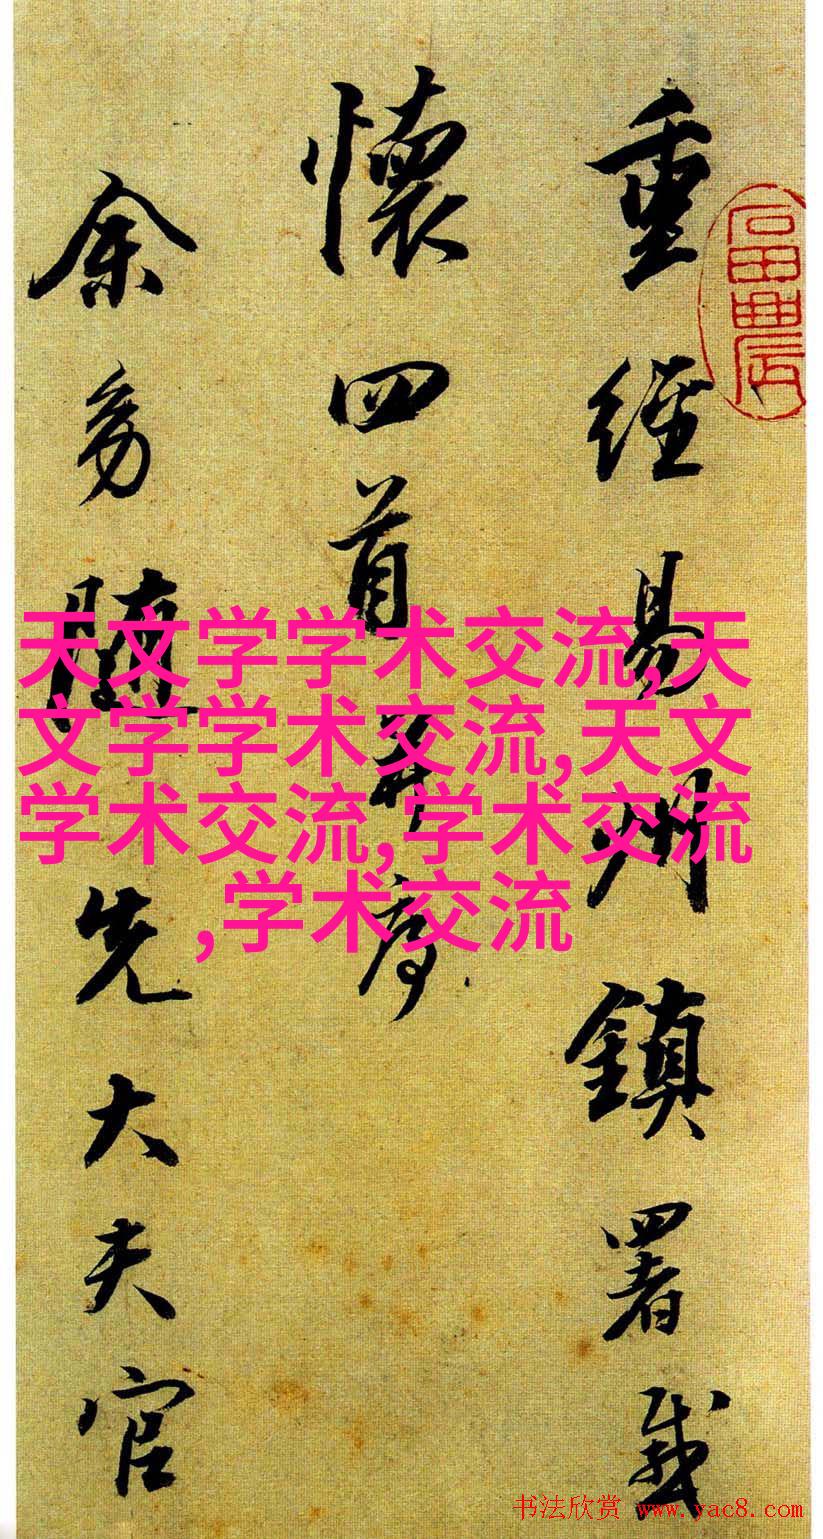 重經易州鎮署感
懷四首并序
余幼隨先大夫官
天文学学术交流,天
文学学术交流,天文
学术交流,学术交流
,学术交流
书法欣赏 www.yac8.com